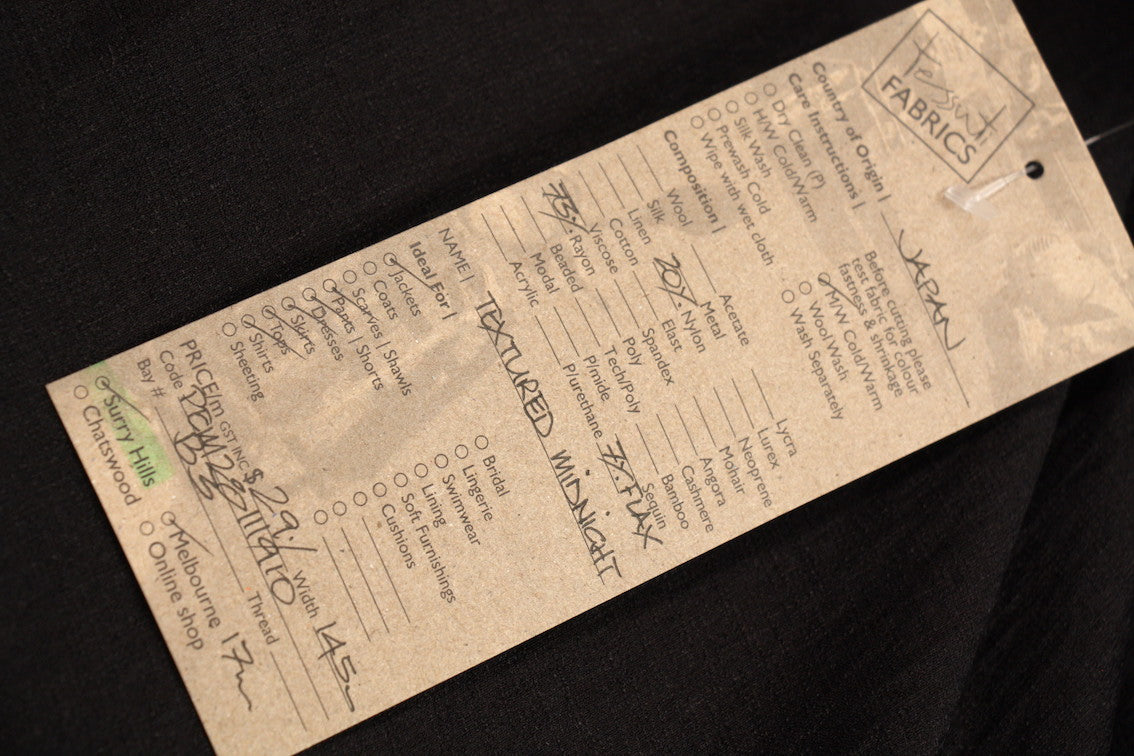 tessuti
FABRICS
Country of Origin | JAPAN
Care Instructions |
Before cutting please
test fabric for colour
fastness & shrinkage
Dry Clean (P)
H/W Cold/Warm
Silk Wash
Prewash Cold
Wipe with wet cloth
M/W Cold/Warm
Wool Wash
Wash Separately
Composition |
Wool
Silk
Linen
Cotton
Viscose
73% Rayon
Beaded
Modal
Acrylic
Acetate
Metal
20% Nylon
Elast
Spandex
Poly
Tech/Poly
P/mide
P/urethane
Lycra
Lurex
Neoprene
Mohair
Angora
Cashmere
Bamboo
Sequin
7% FLAX
NAME | TEXTURED MIDNIGHT
Ideal For |
Jackets
Coats
Scarves | Shawls
Pants | Shorts
Dresses
Skirts
Tops
Shirts
Sheeting
Bridal
Lingerie
Swimwear
Lining
Soft Furnishings
Cushions
PRICE/m GST INC $29.1 Width 145
Code
Bay # Thread
Surry Hills
Chatswood
Melbourne 17m
Online shop